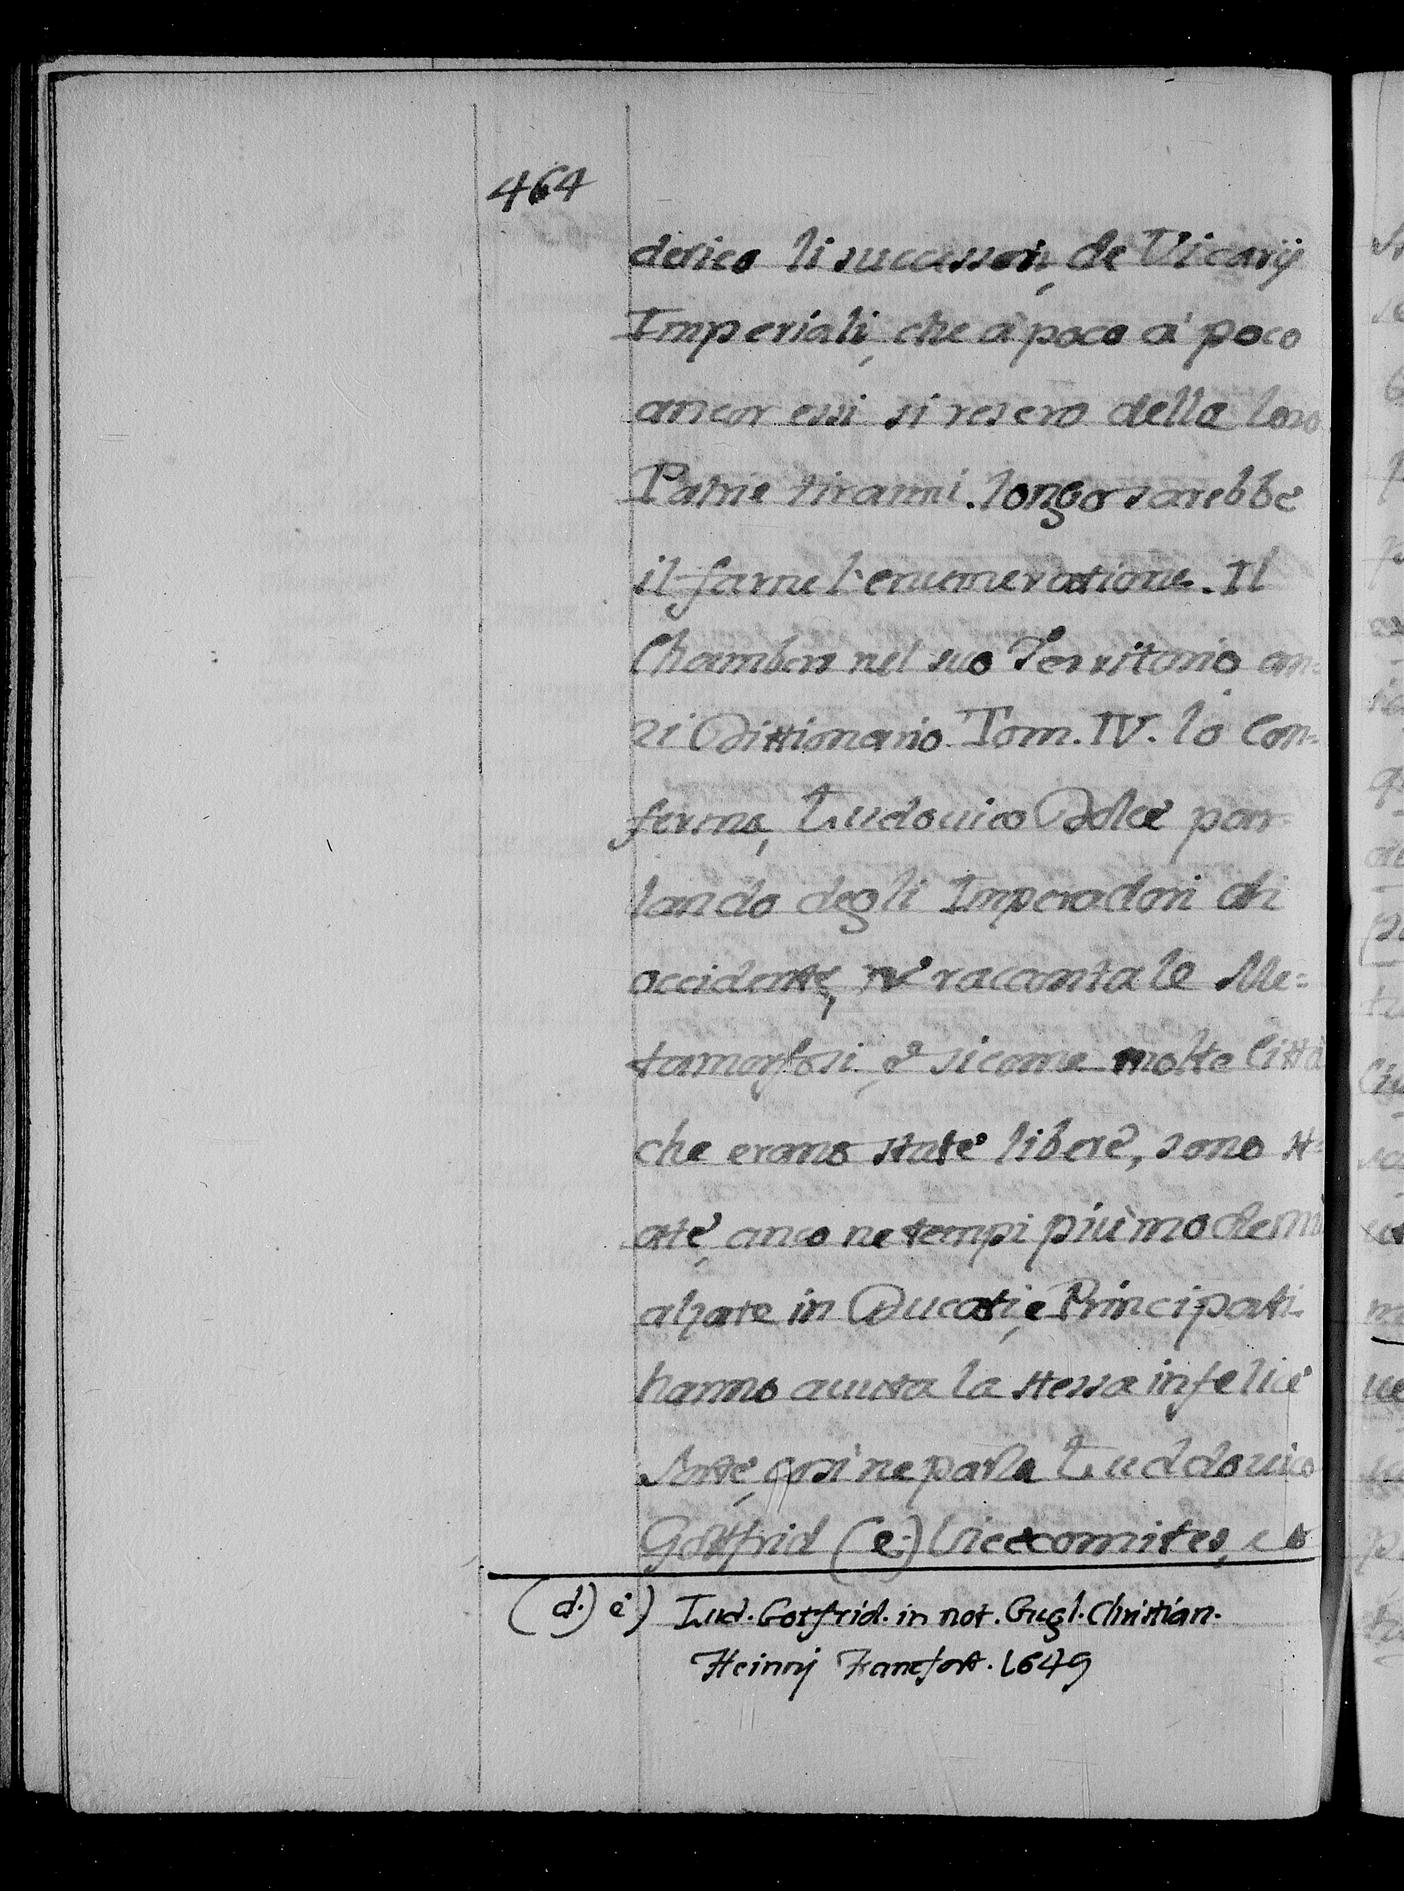 464
derico li successori, de Vicarij
Imperiali, che a poco a' poco
ancor essi si resero della loro
Patrie tiranni. longo sarebbe
il farne l'enumeratione. Il
Chambers nel suo Territorio an=
zi Dittionario Tom. IV. lo Con=
ferma, Ludouico Dolce par=
lando degli Imperadori di
occidente, racconta le Me=
tamorfosi, e sicome molte Città
che erano state libere, sono st=
ate, anco ne tempi più moderni
alzate in Ducati, e Principati
hanno auuta la stessa infelice
Sorte, così ne parla Luddouico
Gottfrid (e.) Vicecomites,
(d.) e) Lud. Gotfrid. in not. Gugl. Christian.
Heinrij Francfort. 1649